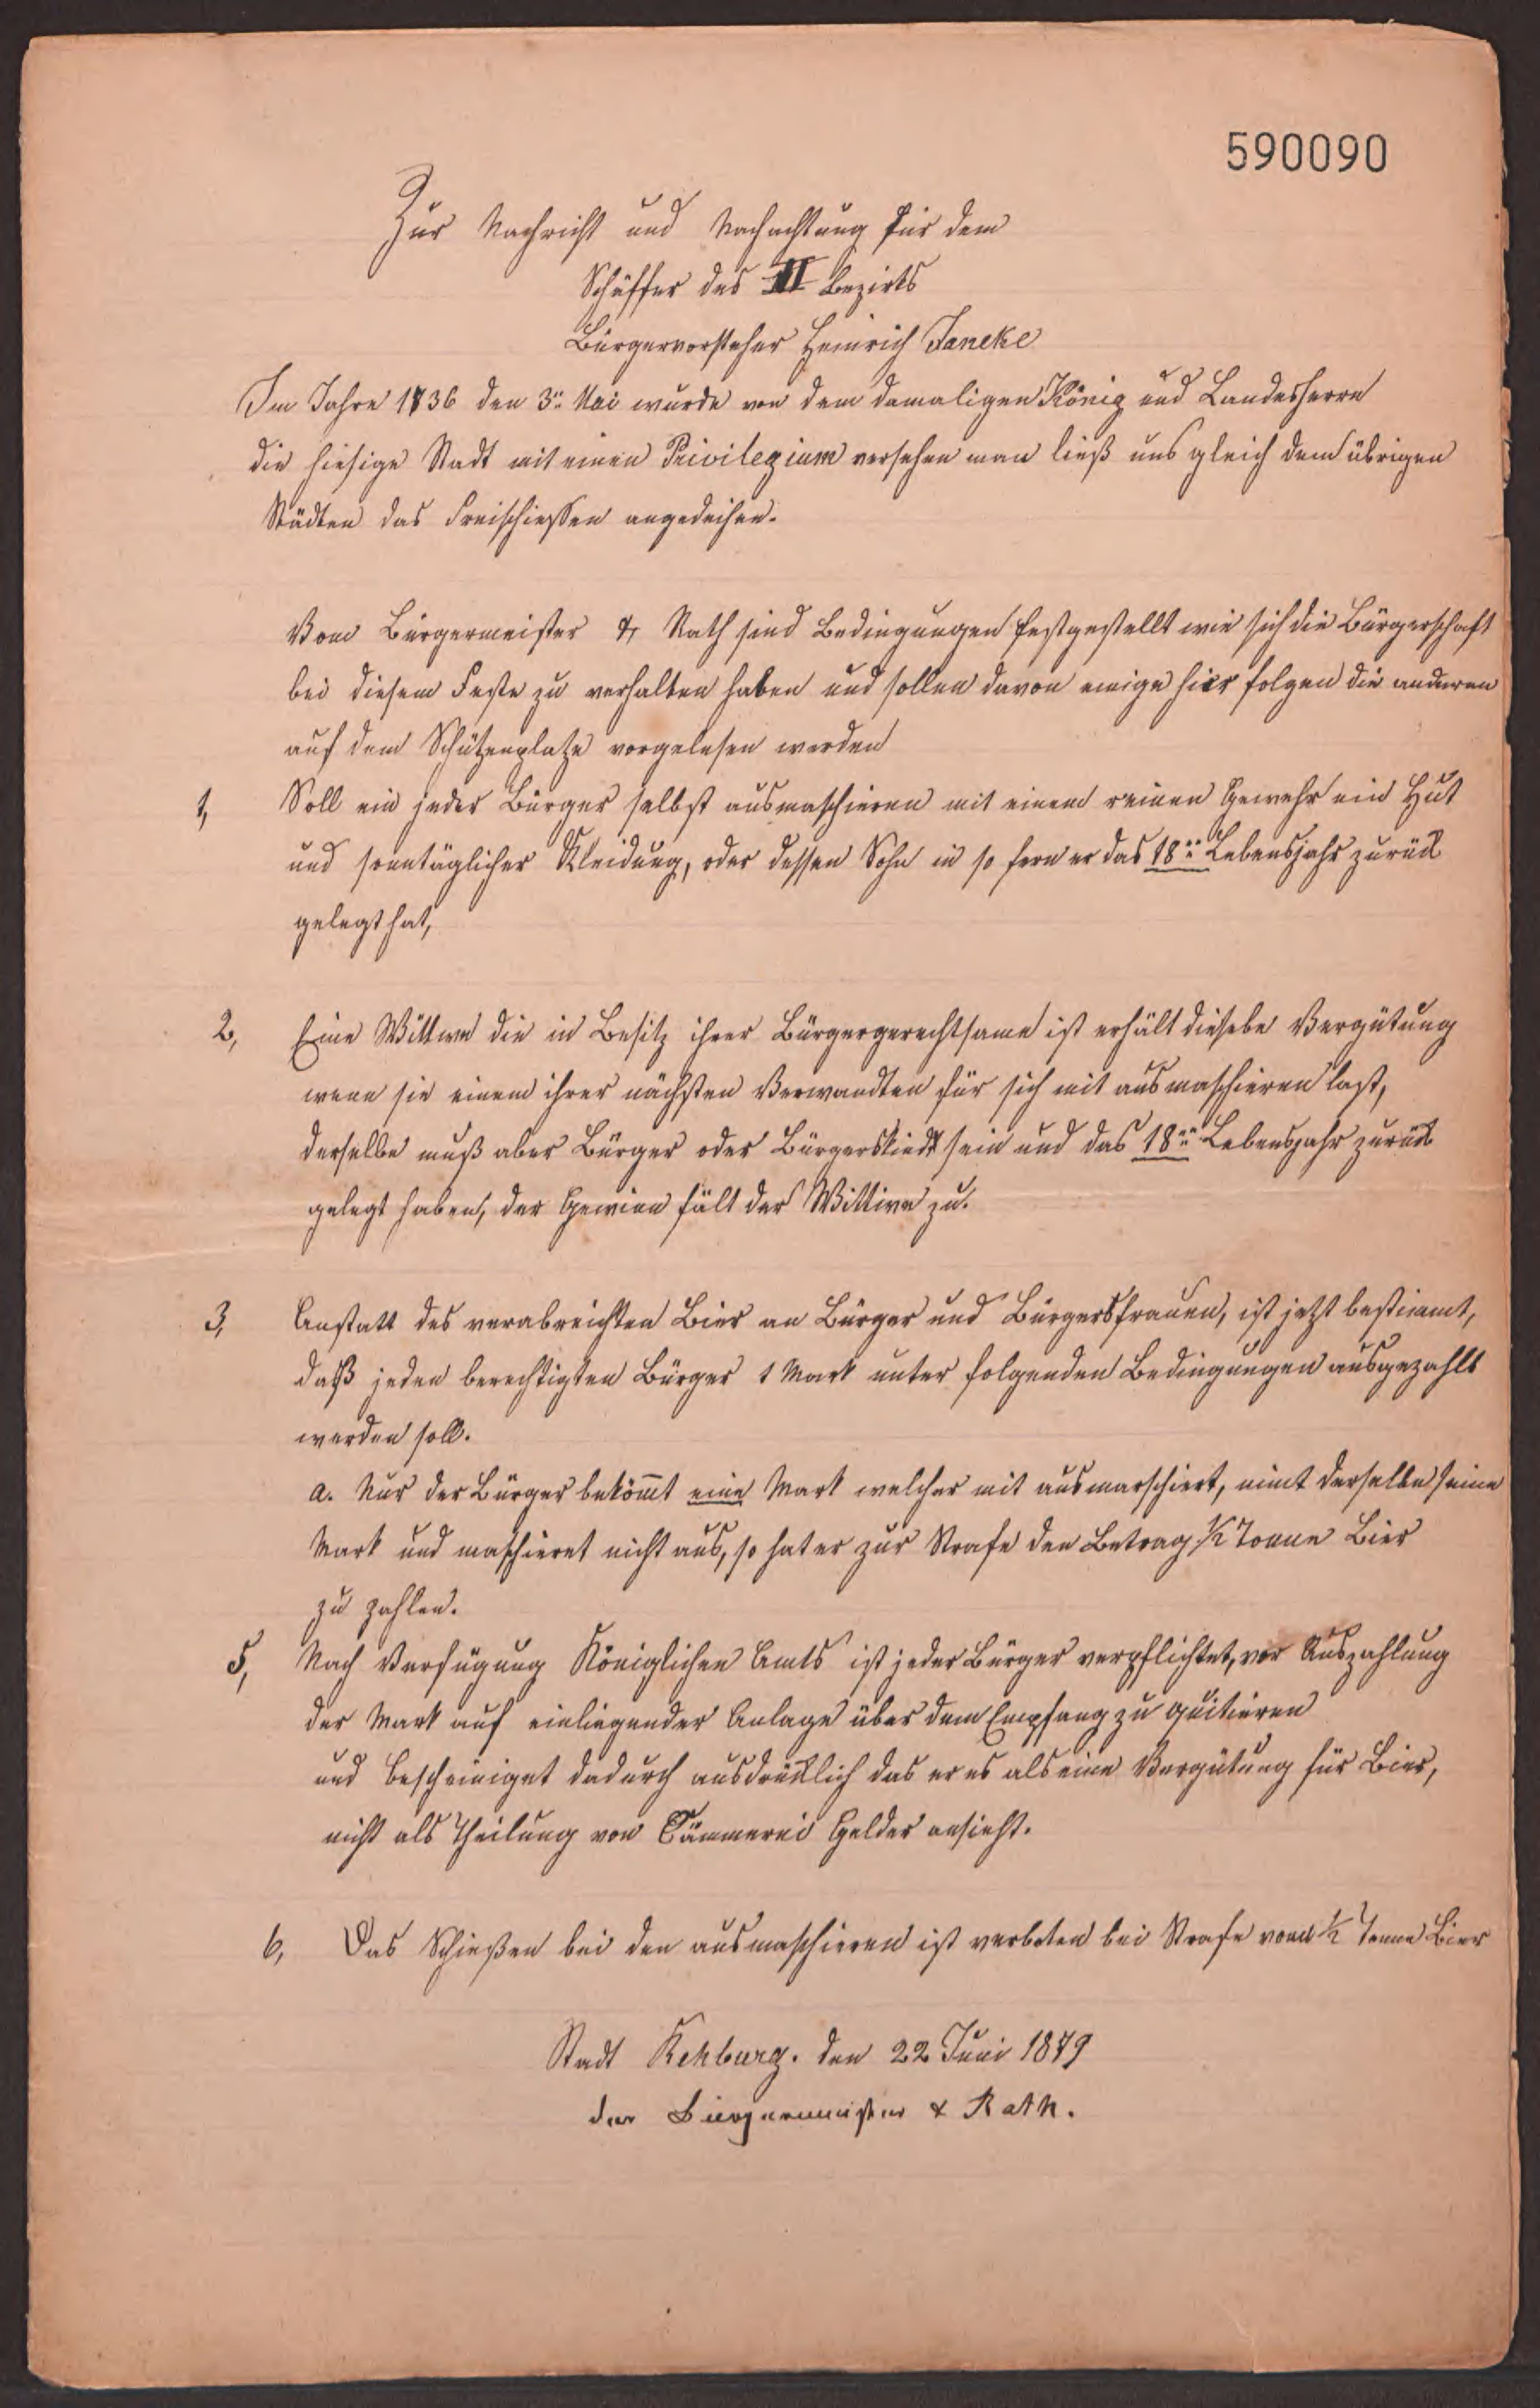 590090
Zur Nachricht und Nachachtung für dem
Schäffer des III Bezirks
Bürgervorsteher Heinrich Janeke
Im Jahre 1736 den 3ᵗᵉⁿ Mai wurde von dem damaligen König und Landesherrn
die hiesige Stadt mit einen Privilegium versehen man ließ uns gleich dem übrigen
Städten das Freischiessen angedeihen.
Vom Bürgermeister & Rath sind Bedingungen festgestellt wie sich die Bürgerschaft
bei diesem Feste zu verhalten haben und sollen davon einige hier folgen die anderen
auf dem Schützenplatze vorgelesen werden
1, Soll ein jeder Bürger selbst ausmaschieren mit einem reinen Gewehr ein Hut
und sonntäglicher Kleidung, oder dessen Sohn in so fern er das 18ᵗᵉ Lebensjahr zurück
gelegt hat,
2, Eine Wittwe die in Besitz ihrer Bürgergerechtsame ist erhält dieselbe Vergütung
wenn sie einem ihrer nächsten Verwandten für sich mit ausmaschieren last,
derselbe muß aber Bürger oder Bürgerskind sein und das 18ᵗᵉ Lebensjahr zurück
gelegt haben, der Gewinn fält der Wittwe zu.
3, Anstatt des verabreichten Bier an Bürger und Bürgersfrauen, ist jetzt bestimmt,
daß jeden berechtigten Bürger 1 Mark unter folgenden Bedingungen ausgezahlt
werden soll.
a. Nur der Bürger bekömmt eine Mark welcher mit ausmarschiert, nimt derselbe seine
Mark und maschieret nicht aus, so hat er zur Strafe den Betrag ½ Tonne Bier
zu zahlen.
5, Nach Verfügung Königlichen Amts ist jeder Bürger verpflichtet, vor Auszahlung
der Mark auf einliegender Anlage über dem Empfang zu quitieren
und bescheiniget dadurch ausdrücklich das er es als eine Vergütung für Bier,
nicht als Theilung von Cämmerei Gelder ansieht.
6, Das Schießen bei den ausmaschieren ist verboten bei Strafe vom ½ Tonne Bier
Stadt Rehburg. den 22 Juni 1879
der Bürgermeister & Rath.